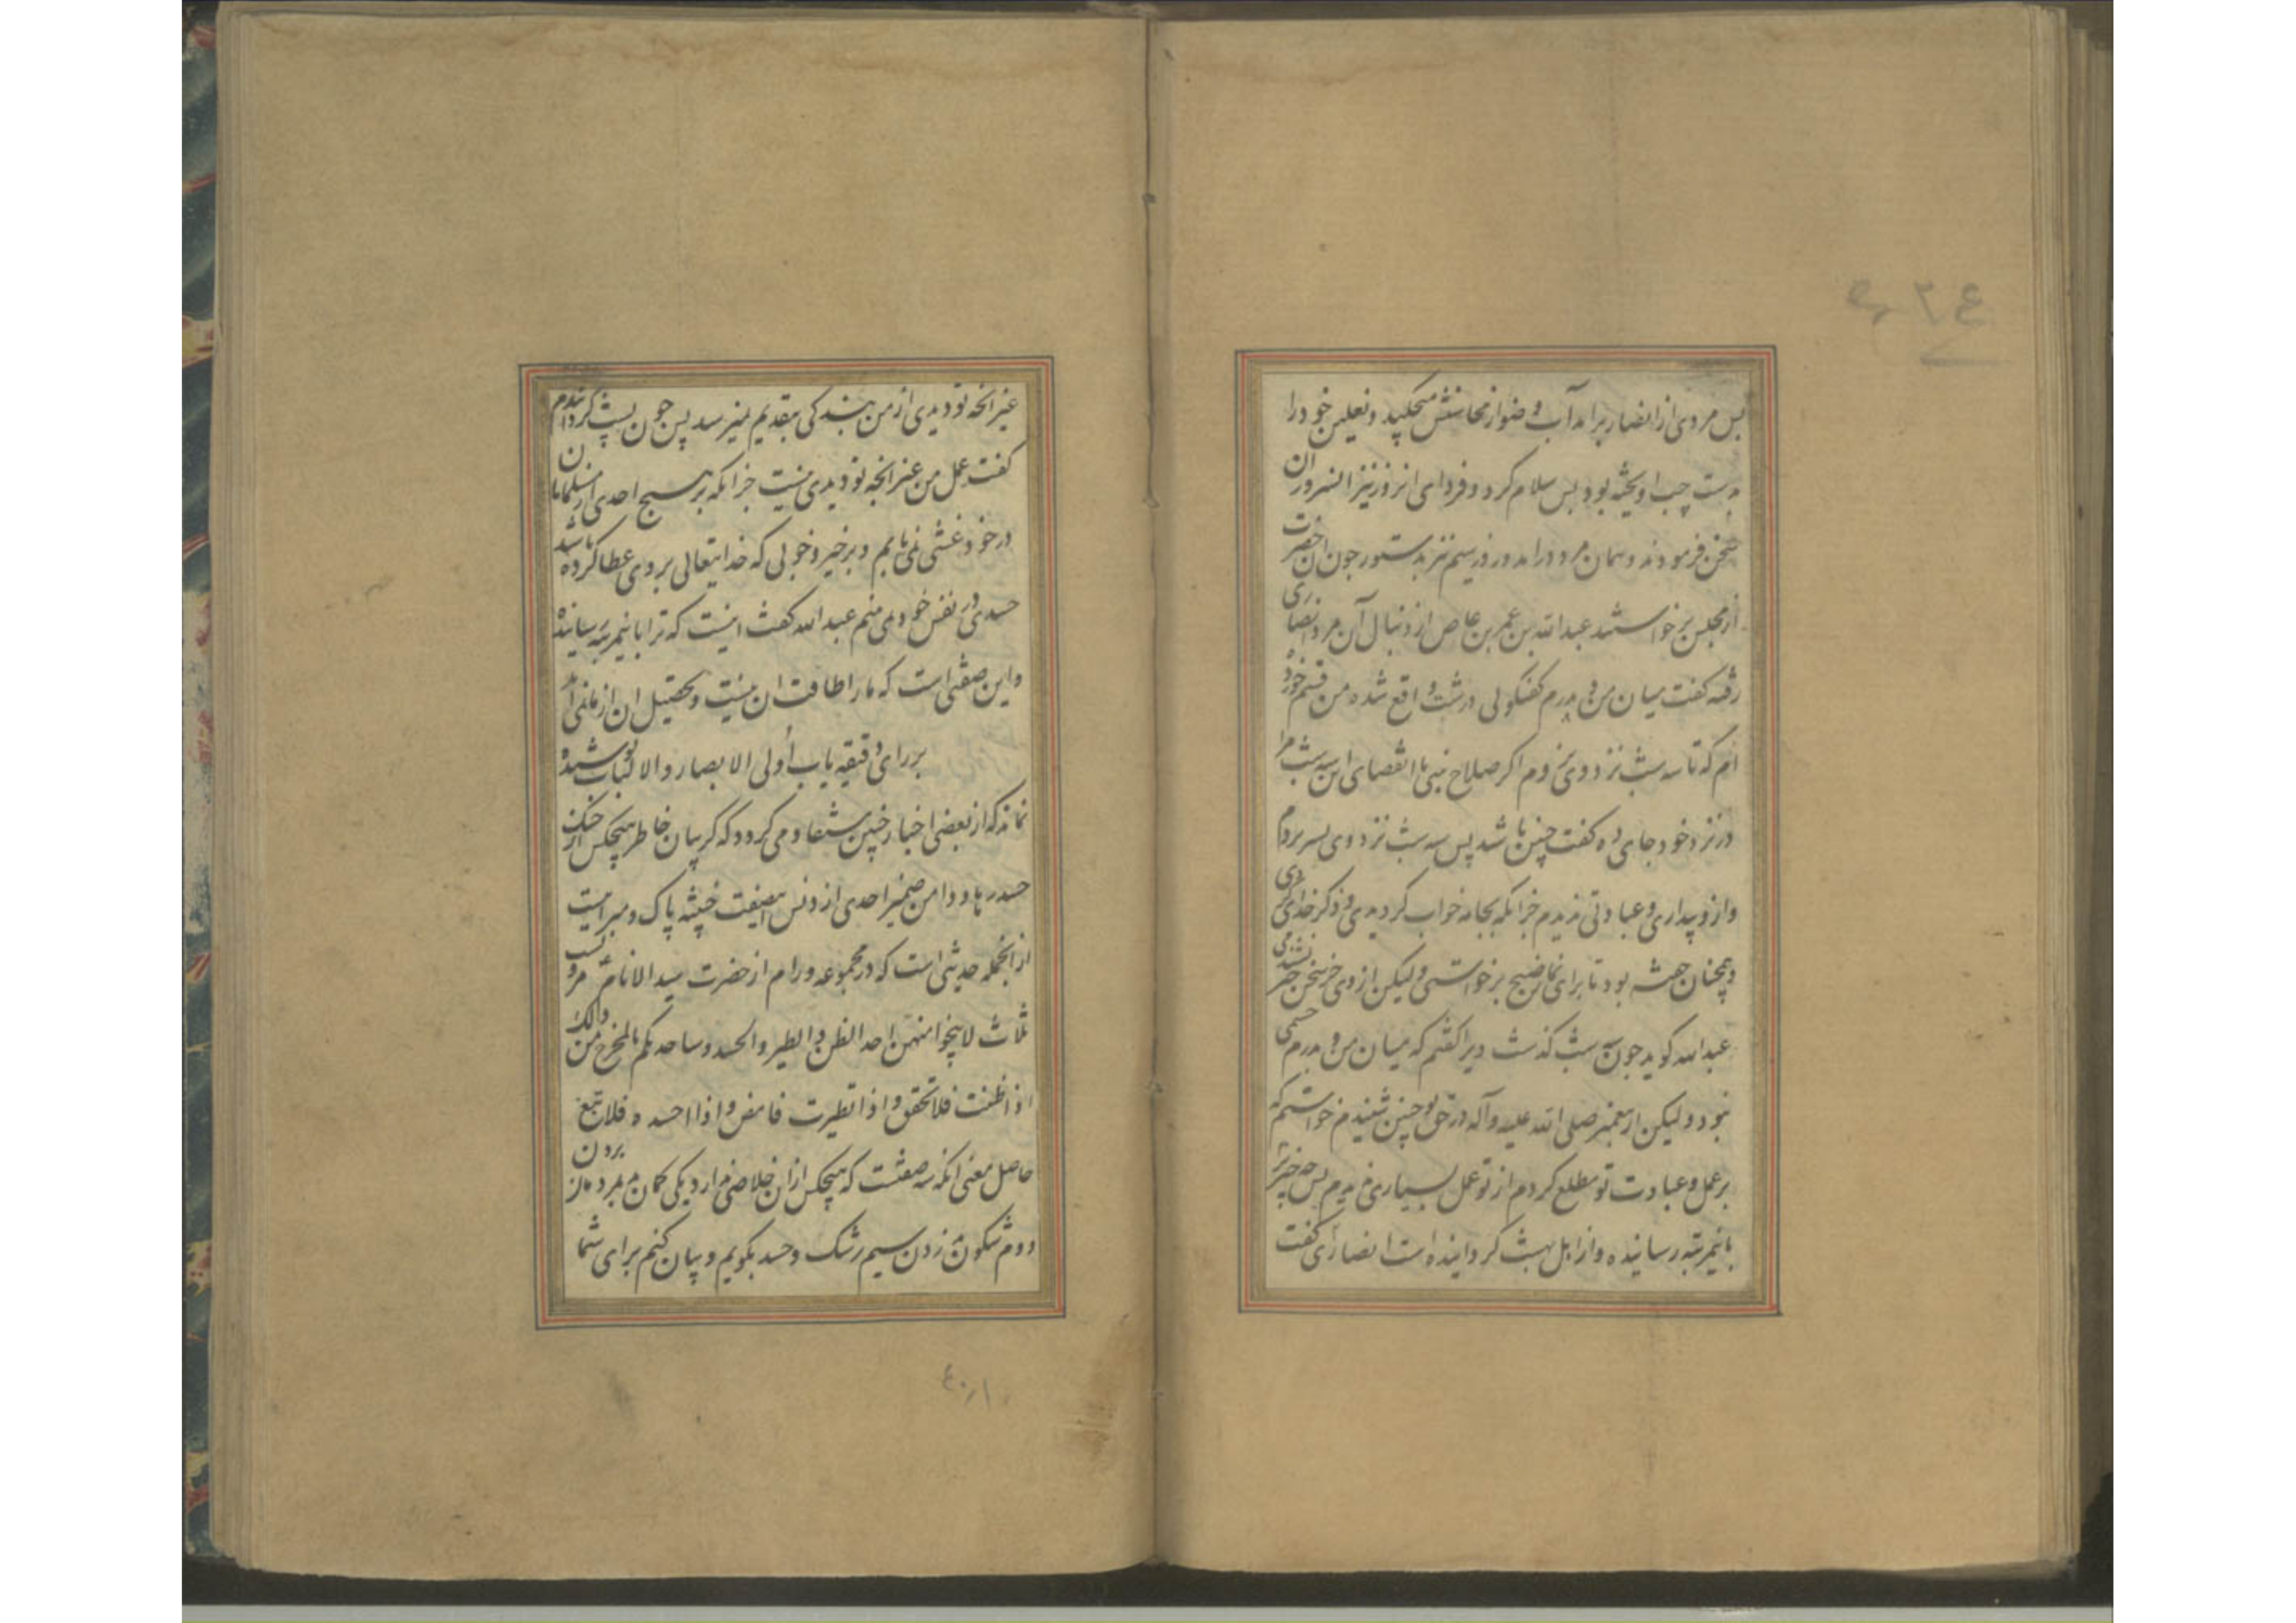 پس مردی از انصار برامد آب وضو از محاسنش میچکید و نعلین خود را
بدست چپ اویخته بود پس سلام کرد و فردای انروز نیز انسرور ان
سخن فرمودند و همان مرد درامد و روز سیم نیز بدستور چون انحضرت
از مجلس برخواستند عبدالله بن عمر بن عاص از دنبال آن مرد انصاری
رفته کفت میان من و پدرم کفتکوئی درشت واقع شده من قسم خورده
ام که تا سه شب نزد وی نروم اکر صلاح بینی تا انقضای این سه شب مرا
در نزد خود جای ده کفت چنین باشد پس سه شب نزد وی بسر بردم
و از و بیداری و عبادتی ندیدم جز انکه بجامه خواب کردیدی ذکر خدای کردی
و همچنان خفته بود تا برای نماز صبح برخواستی و لیکن از وی جز سخن خیر نشنیدمی
عبدالله کوید چون سه شب کذشت ویرا کفتم که میان من و پدرم خشمی
نبود و لیکن از پیغمبر صلی الله علیه و آله در حق تو چنین شنیدم خواستم که
بر عمل و عبادت تو مطلع کردم از تو عمل بسیاری ندیدم پس چه چیز ترا
باینمرتبه رسانیده و از اهل بهشت کردانیده است انصاری کفت
غیر انچه تو دیدی از من بندکی بتقدیم نمیرسد پس چون پشت کردانیدم
کفت عمل من غیر انچه تو دیدی نیست جز انکه بر هیچ احدی از مسلمانان
در خود غشی نمی یابم و بر خیر و خوبی که خدایتعالی بر وی عطا کرده باشد
حسدی در نفس خود نمی بینم عبدالله کفت اینست که ترا باینمرتبه رسانیده
و این صفتی است که ما را طاقت ان نیست و تحصیل ان از ما نمی آید
بر رای دقیقه یاب أولی الابصار والالباب پوشیده
نماند که از بعضی اخبار چنین مستفاد می کردد که کریبان خاطر هیچکس از چنک
حسد رها و دامن ضمیر احدی از دنس این صفت خبیثه پاک و مبرا نیست
از انجمله حدیثی است که در مجموعه ورام از حضرت سید الانام مرویست
ثلاث لا ینجوا منهن احد الظن والطیر والحسد وساحدثکم بالمخرج من ذالک
اذا ظننت فلا تحقق و اذا تطیرت فامض و اذا احسده فلا تبغ
حاصل معنی انکه سه صفتست که هیچکس از ان خلاصی ندارد یکی کمان بد بردن
دوم شکون بد زدن سیم رشک و حسد بکویم و بیان کنم برای شما
۴۰۱